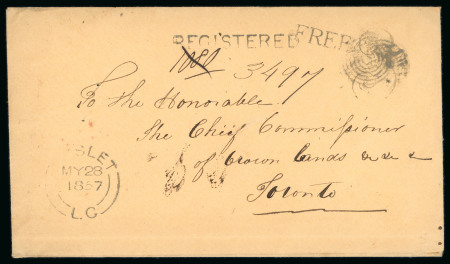 REGISTERED FREE
1080 3497
To the Honorable
The Chief Commissioner
of Crown Lands &c &c &
Toronto
ISLET
MY 28
1857
L.C